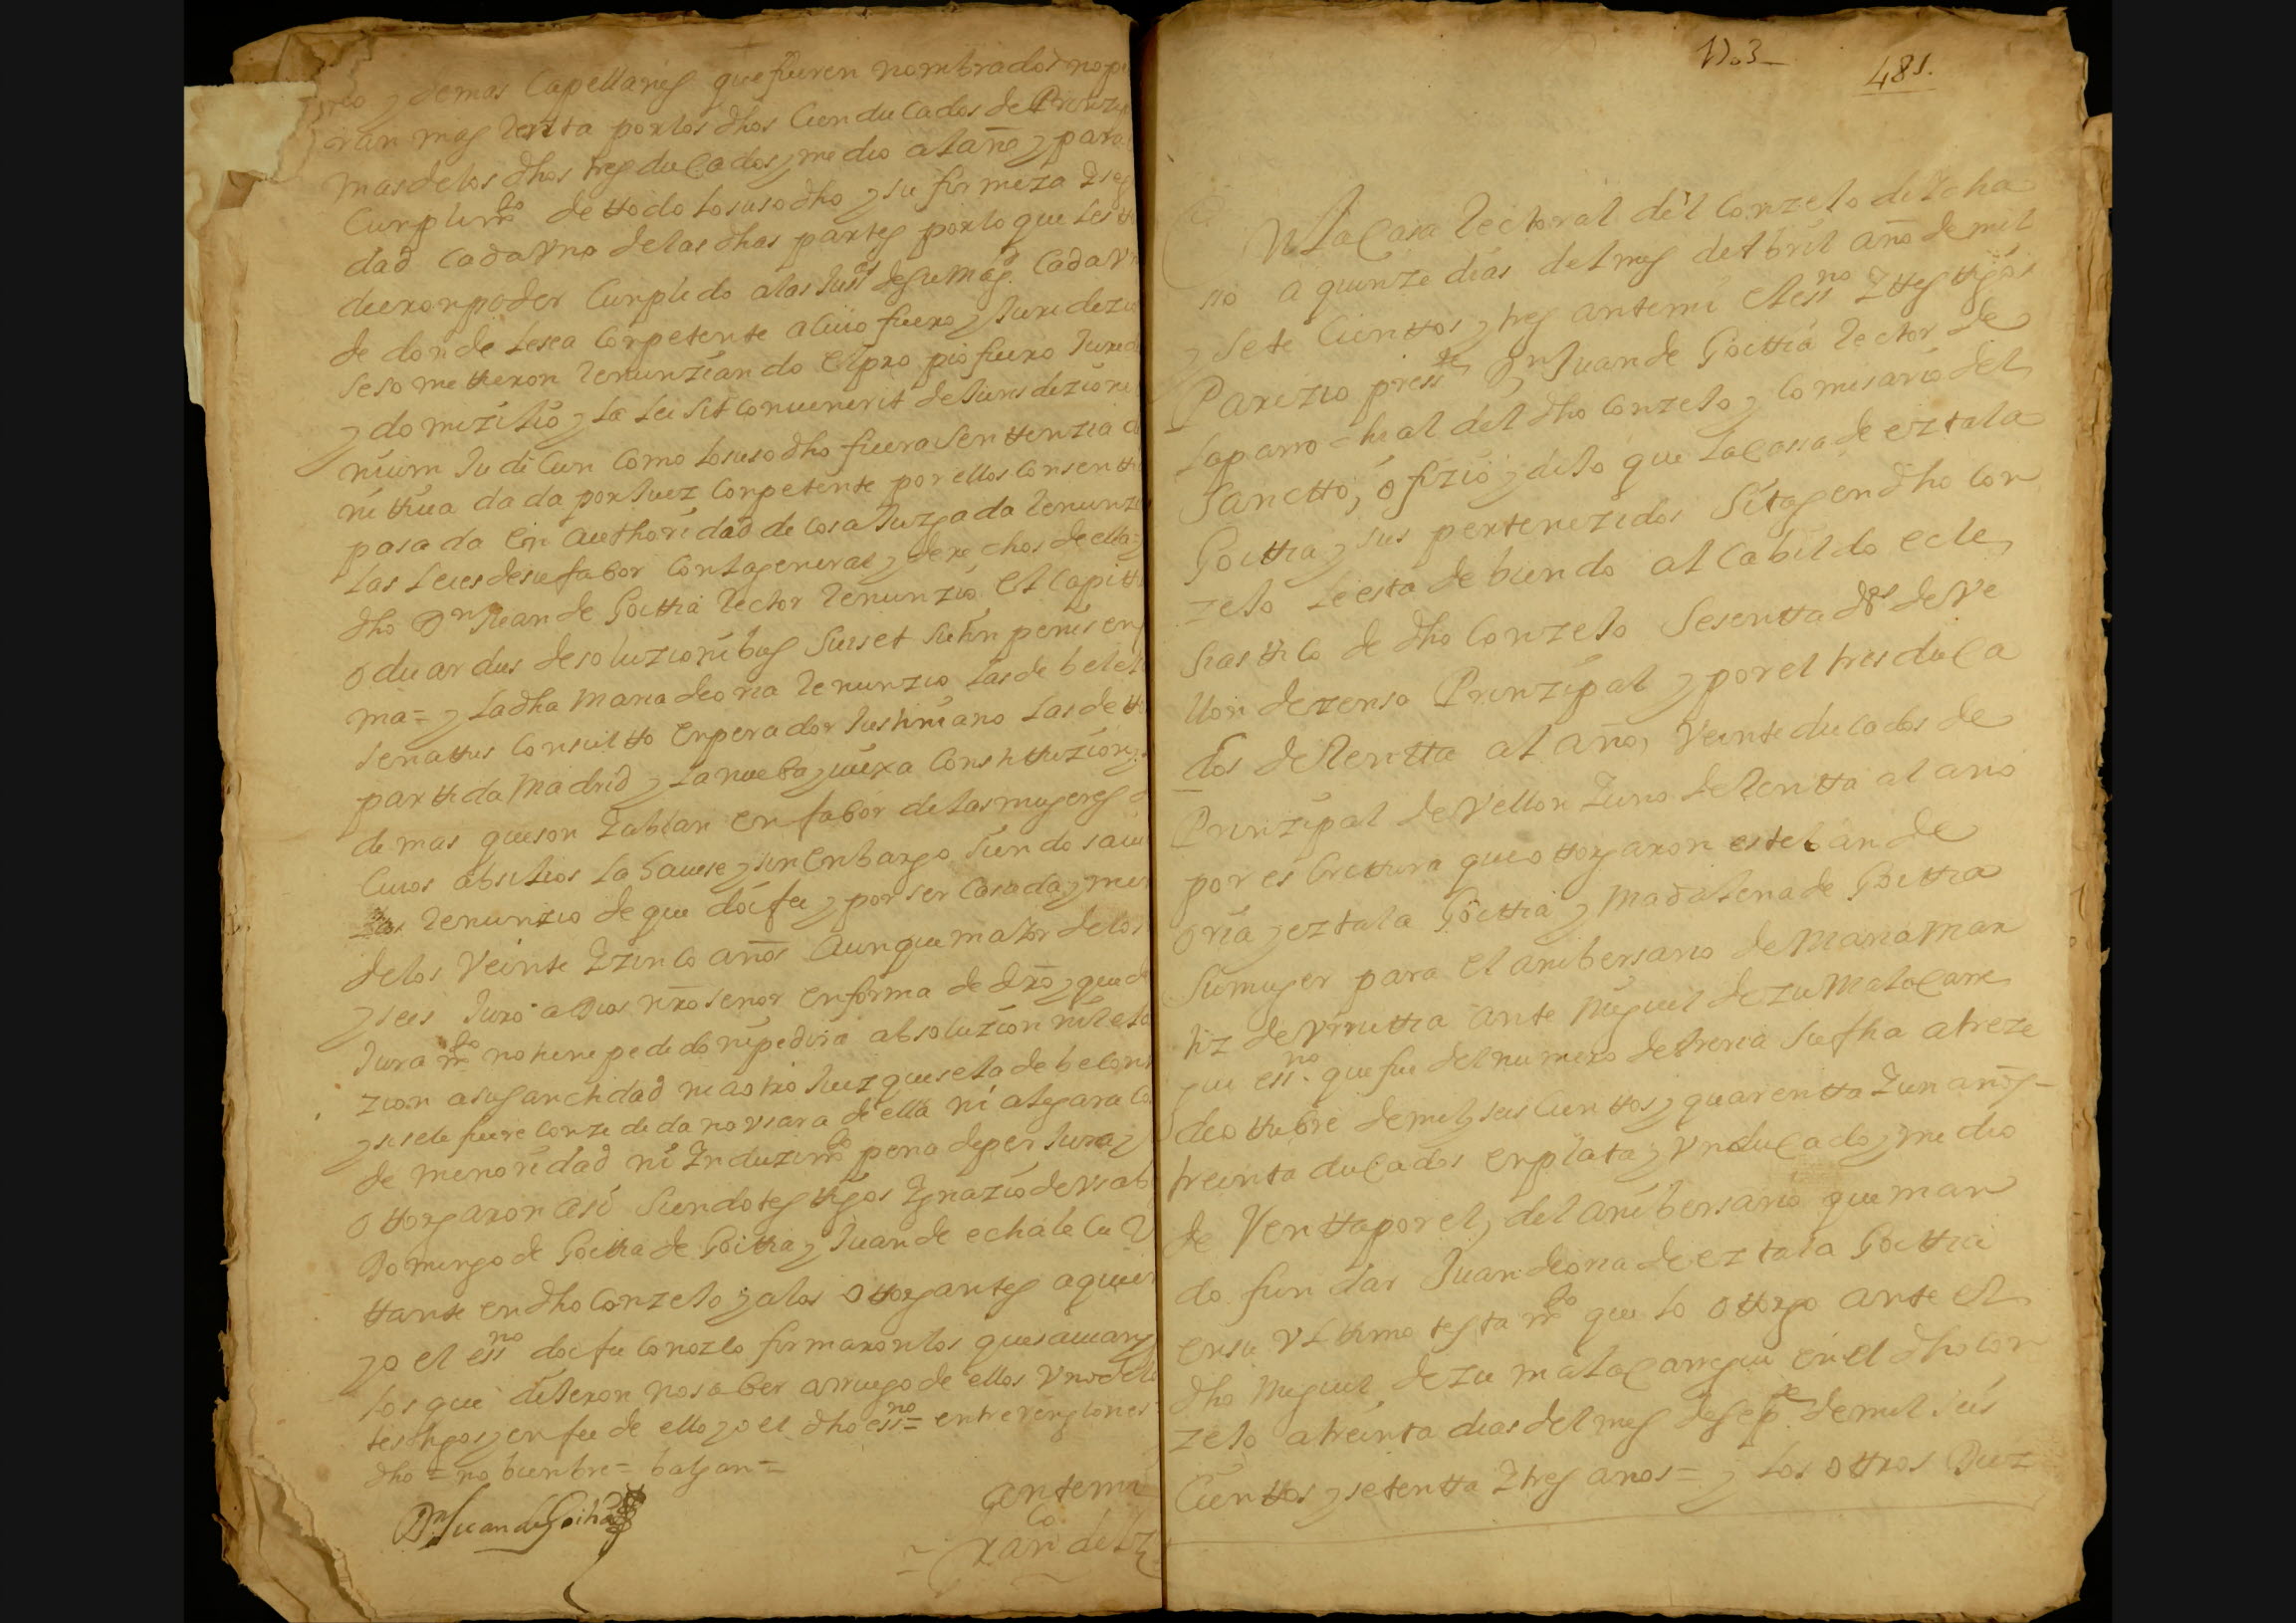 rio y demas Capellanes que fueren nombrados no
ran mas Rentta por los dhos Cien ducados de Prinzip
mas de los dhos tres ducados y medio al año y para
Cunplimto de ttodo lo susodho y su firmeza
dad Cada Vno de las dhas partes por lo que les
dieron poder Cunplido a las Justs de su Magd Cada V
de donde le sea Conpetente a Cuio fuero y Juridizi
se sometieron Renunziando El propio fuero Jured
y domizilio y la lei Sit Convenerit de Jurisdizione
nium Judicun Como lo susodho fuera Senttenzia
nittiua dada por Juez Conpetente por ellos Consentt
pasada En authoridad de Cosa Juzgada Renunzi
las leies de su fabor Con la general y derechos de ella y
dho Dn Juan de Goittia Rector Renunzio El Capitt
oduardus de soluzionibus Suiset
ma = y la dha Maria de oria Renunzio las de belel
senattus Consultto Enperador Justiniano las de tt
parttida Madrid y la nueba y uiexa Consttituzion
de mas que son Y ablan En fabor de las mugeres
Cuios absilios la Hauise y sin Enbargo Siendo saui
las Renunzio de que doi fee y por ser Casada y men
de los Veinte Y zinco años Aunque maior de los
y seis Juro a Dios nro Señor En forma de dro que d
Juramto no tiene pedido ni pedira absoluzion ni
zion a su Sanctidad ni a otro Juez que se la deba Con
y si se le fuere Conzedida no Vsara de ella ni alegara
de menoridad ni Ynduzimto pena de perJura y
ottorgaron asi Siendo testtigos Ygnazio de Vsab
Domingo de Goittia de Goittia y Juan de echalecu
ttante en dho Conzejo y a los Ottorgantes a quien
yo el essno doi fee Conozco firmaron los que sauian
los que dijeron no saber a Ruego de ellos Vno de
testigos y en fee de ello yo el dho essno = entre renglones
dho = no bienbre = balgan =
Dn Juan de Goitia
ante mi
Franco de
No 3
481.
En la Casa Rectoral del Conzejo de Ycha
so a quinze dias del mes de Abril año de mil
y Sete Cienttos y tres ante mi El essno Y testtigos
Parezio presste Dn Juan de Goittia Rector de
la parrochial del dho Conzejo y Comisario del
Sanctto, ofizio y dijo que la Casa de eztala
Goittia y sus pertenezidos Sitas en dho Con
zejo le esta debiendo al Cabildo ecle
siasttico de dho Conzejo Sesentta ds de Ve
llon de zenso Prinzipal y por el tres duca
dos de Rentta al año, Veinte ducados de
Prinzipal de Vellon Y uno de Rentta al año
por escrittura que ottorgaron esteban de
oria y eztala Goittia y Madalena de Goittia
Su muger para El anibersario de Maria Mar
tiz de Vrruttia ante Miguel de zumalacarre
gui essno que fue del numero de Areria Su fha a treze
de ottubre de mil y seis Cienttos y quarentta Y un años
treinta ducados en plata y Vn ducado y medio
de Renttapor el, del anibersario que man
do fundar Juan de oria de eztala Goittia
en su Vltimo testamto que lo ottorgo ante El
dho Miguel de zumalacarregui en el dho Con
zejo a treinta dias del mes de Sepe de mil seis
Cienttos y setentta Y tres años = y los ottros Diez